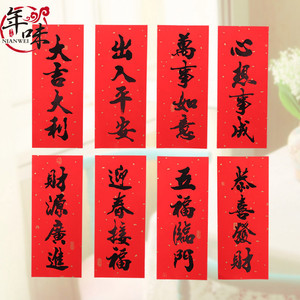 年味
NIANWEI
大吉大利
出入平安
萬事如意
心想事成
財源廣進
迎春接福
五福臨門
恭喜發財